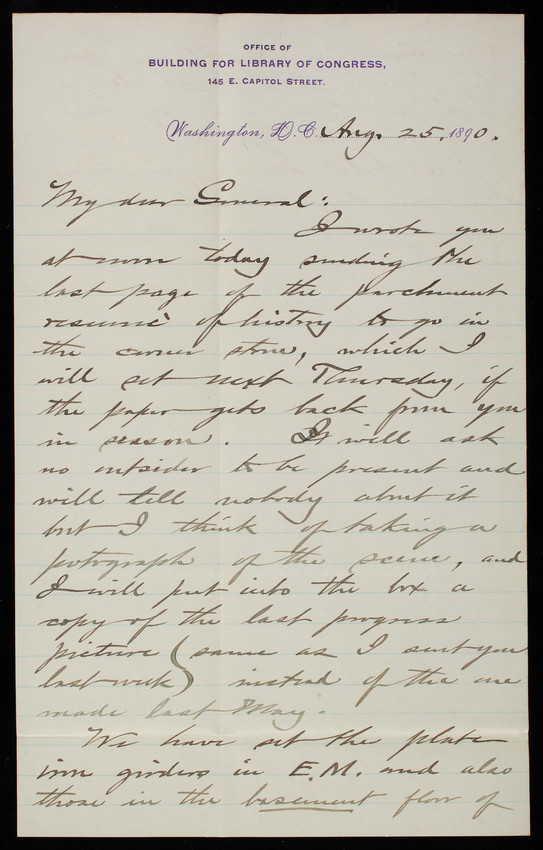 OFFICE OF
BUILDING FOR LIBRARY OF CONGRESS,
145 E. CAPITOL STREET.
Washington, D.C. Aug. 25, 1890.
My dear General:
I wrote you
at noon today sending the
last page of the parchment
resumè of history to go in
the corner stone, which I
will set next Thursday, if
the paper gets back from you
in season. I will ask
no outsider to be present and
will tell nobody about it
but I think of taking a
potograph of the scene, and
I will put into the box a
copy of the last progress
picture (same as I sent you
last week) instead of the one
made last May.
We have set the plate
iron girders in E.M. and also
those in the basement floor of